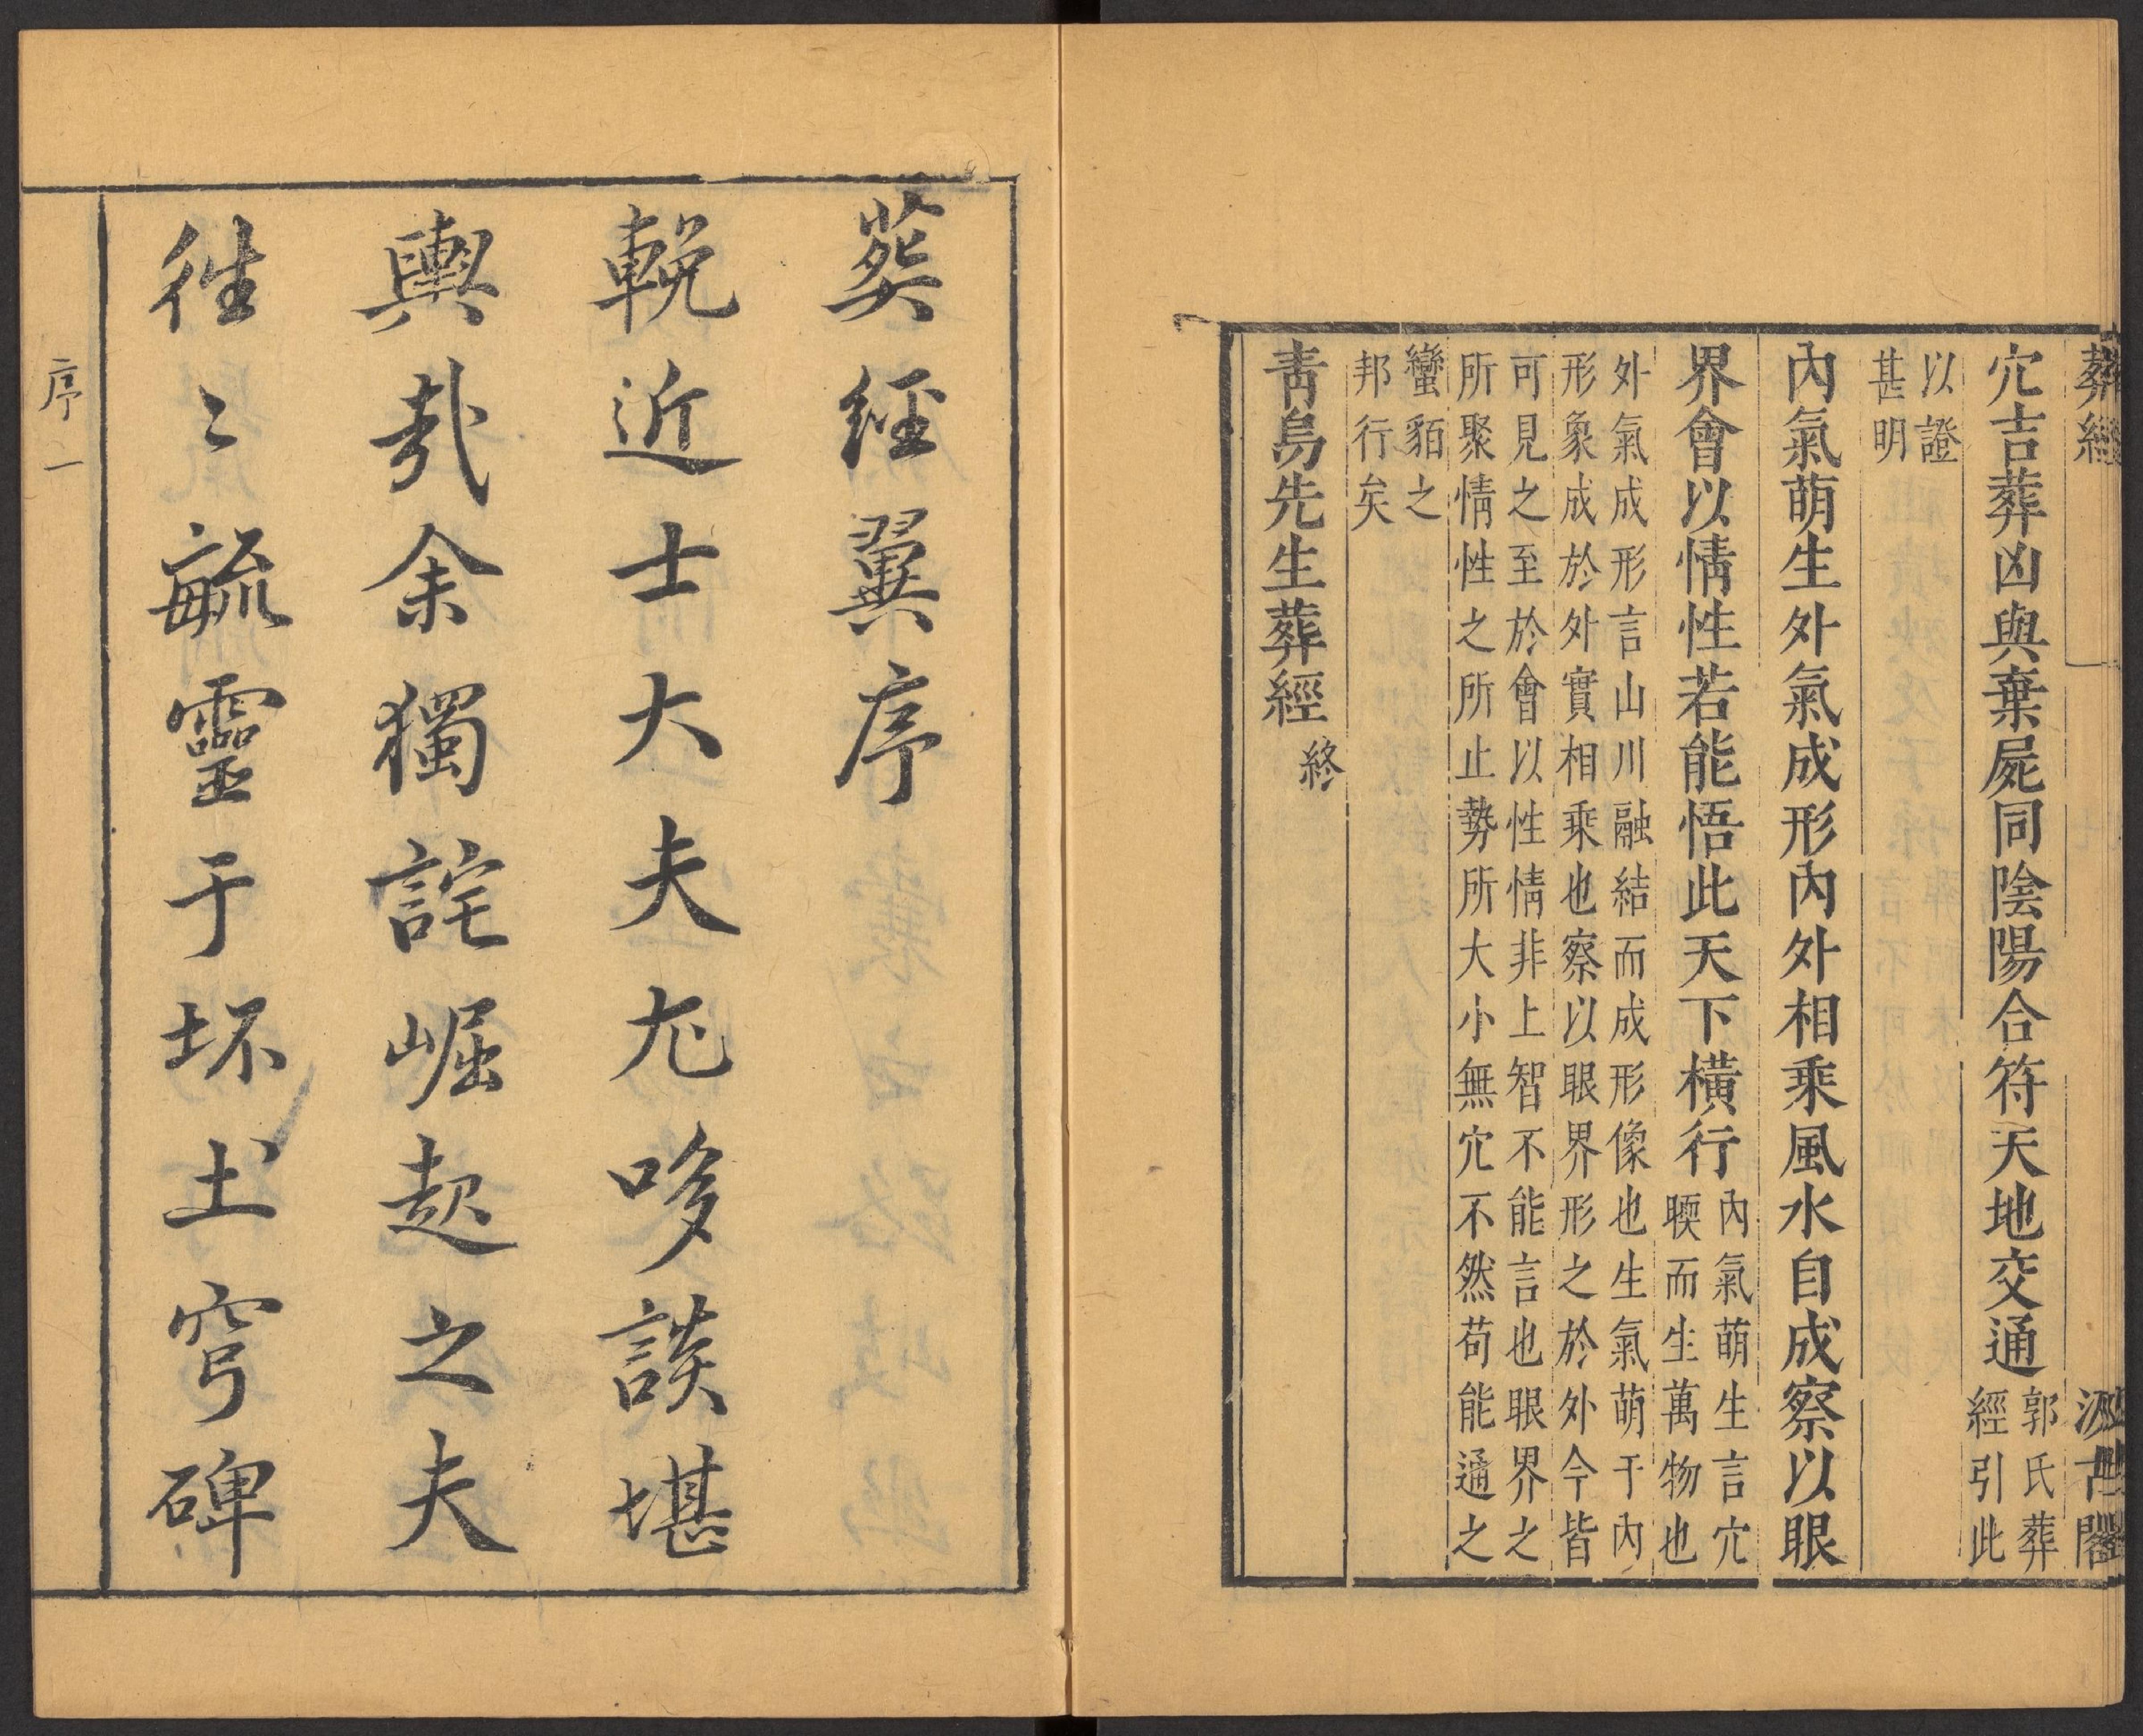 葬經
汲古閣
穴吉葬凶與棄屍同陰陽合符天地交通
郭氏葬
經引此
以證
甚明
內氣萌生外氣成形內外相乘風水自成察以眼
界會以情性若能悟此天下橫行
內氣萌生言穴
暖而生萬物也
外氣成形言山川融結而成形像也生氣萌于內
形象成於外實相乘也察以眼界形之於外今皆
可見之至於會以性情非上智不能言也眼界之
所聚情性之所止勢所大小無穴不然苟能通之
蠻貊之
邦行矣
青烏先生葬經 終
葬經翼序
輓近士大夫尤哆談堪
輿哉余獨詫崛起之夫
往〻毓靈于坏土穹碑
序 一